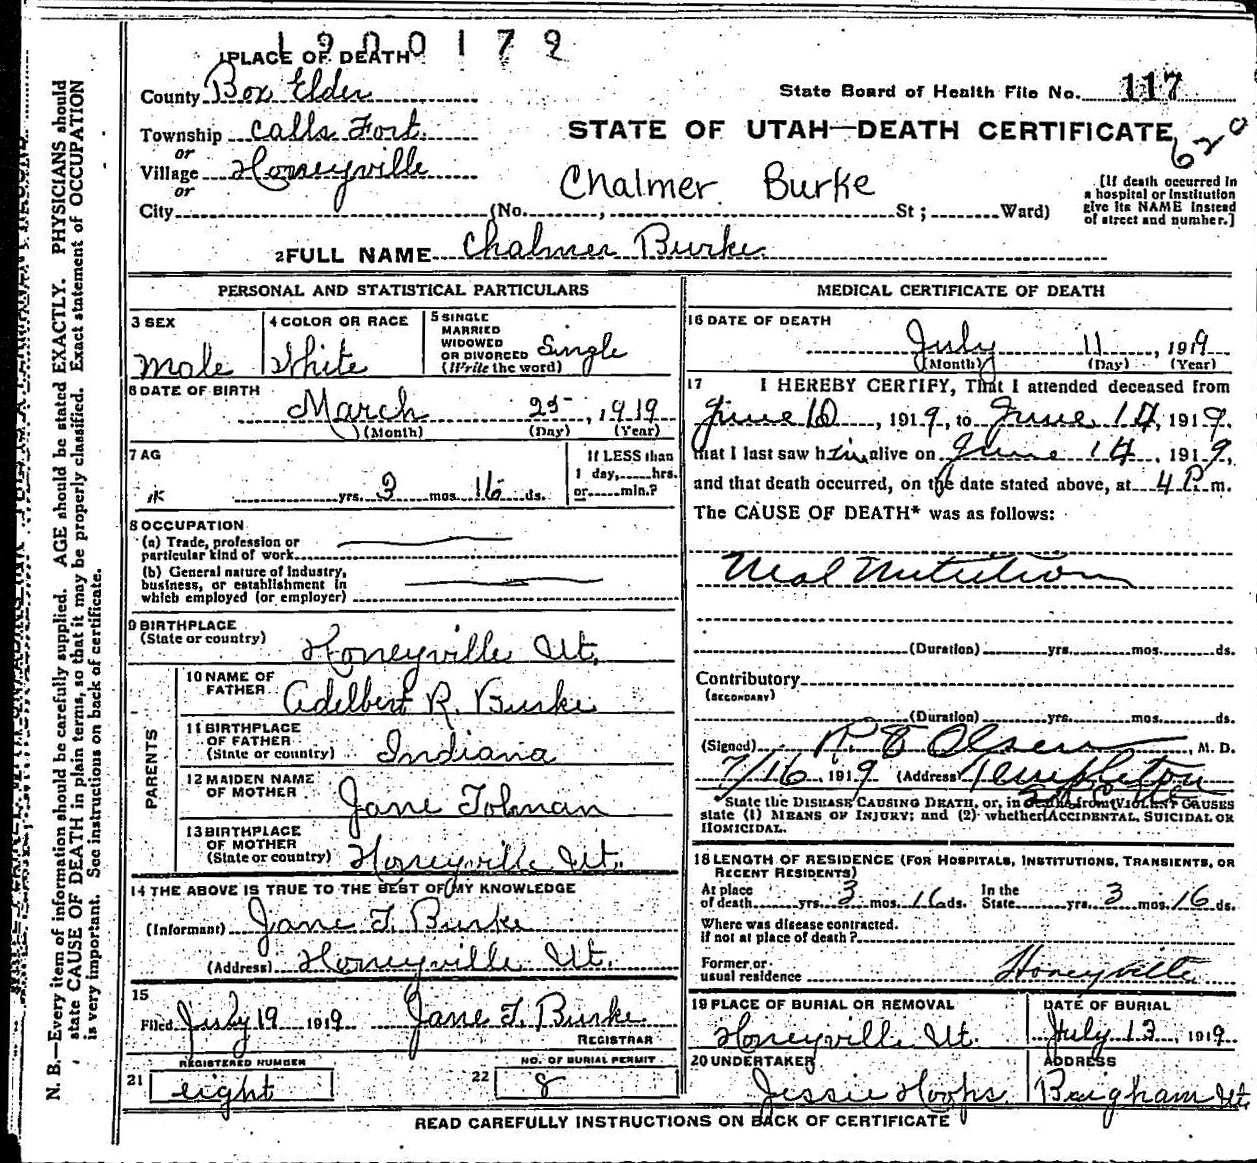 1900179
1 PLACE OF DEATH
County Box Elder
State Board of Health File No. 117
Township Calls Fort.
or
STATE OF UTAH—DEATH CERTIFICATE
620
Village Honeyville
or
Chalmer Burke
[If death occurred in
a hospital or institution
give its NAME instead
of street and number.]
City (No. ; St ; Ward)
2 FULL NAME Chalmer Burke.
PERSONAL AND STATISTICAL PARTICULARS
3 SEX
Male
4 COLOR OR RACE
White
5 SINGLE
MARRIED
WIDOWED
OR DIVORCED
(Write the word)
Single
6 DATE OF BIRTH
March 25, 1919
(Month) (Day) (Year)
7 AG
yrs. 3 mos. 16 ds.
If LESS than
1 day, hrs.
or min.?
8 OCCUPATION
(a) Trade, profession or
particular kind of work
(b) General nature of industry,
business, or establishment in
which employed (or employer)
9 BIRTHPLACE
(State or country) Honeyville Ut.
PARENTS
10 NAME OF
FATHER Adelbert R. Burke
11 BIRTHPLACE
OF FATHER
(State or country) Indiana
12 MAIDEN NAME
OF MOTHER Jane Tolman
13 BIRTHPLACE
OF MOTHER
(State or country) Honeyville Ut.
14 THE ABOVE IS TRUE TO THE BEST OF MY KNOWLEDGE
(Informant) Jane T. Burke
(Address) Honeyville Ut.
15
Filed July 19 1919 Jane T. Burke
REGISTRAR
REGISTERED NUMBER
21 eight
NO. OF BURIAL PERMIT
22 8
MEDICAL CERTIFICATE OF DEATH
16 DATE OF DEATH
July 11, 1919
(Month) (Day) (Year)
17 I HEREBY CERTIFY, That I attended deceased from
June 10, 1919, to June 14, 1919.
that I last saw him alive on June 14, 1919,
and that death occurred, on the date stated above, at 4 P. m.
The CAUSE OF DEATH* was as follows:
Mal Nutrition
(Duration) yrs. mos. ds.
Contributory
(SECONDARY)
(Duration) yrs. mos. ds.
(Signed) R E Olsen, M. D.
7/16, 1919 (Address) Templeton
State the DISEASE CAUSING DEATH, or, in deaths from VIOLENT CAUSES
state (1) MEANS OF INJURY; and (2) whether ACCIDENTAL, SUICIDAL OR
HOMICIDAL.
18 LENGTH OF RESIDENCE (FOR HOSPITALS, INSTITUTIONS, TRANSIENTS, OR
RECENT RESIDENTS)
At place
of death yrs. 3 mos. 16 ds.
In the
State yrs. 3 mos. 16 ds.
Where was disease contracted.
if not at place of death?
Former or
usual residence Honeyville
19 PLACE OF BURIAL OR REMOVAL
Honeyville Ut.
DATE OF BURIAL
July 13, 1919
20 UNDERTAKER
Jessie Hoops
ADDRESS
Brigham Ut.
READ CAREFULLY INSTRUCTIONS ON BACK OF CERTIFICATE
N. B.—Every item of information should be carefully supplied. AGE should be stated EXACTLY. PHYSICIANS should
state CAUSE OF DEATH in plain terms, so that it may be properly classified. Exact statement of OCCUPATION
is very important. See instructions on back of certificate.